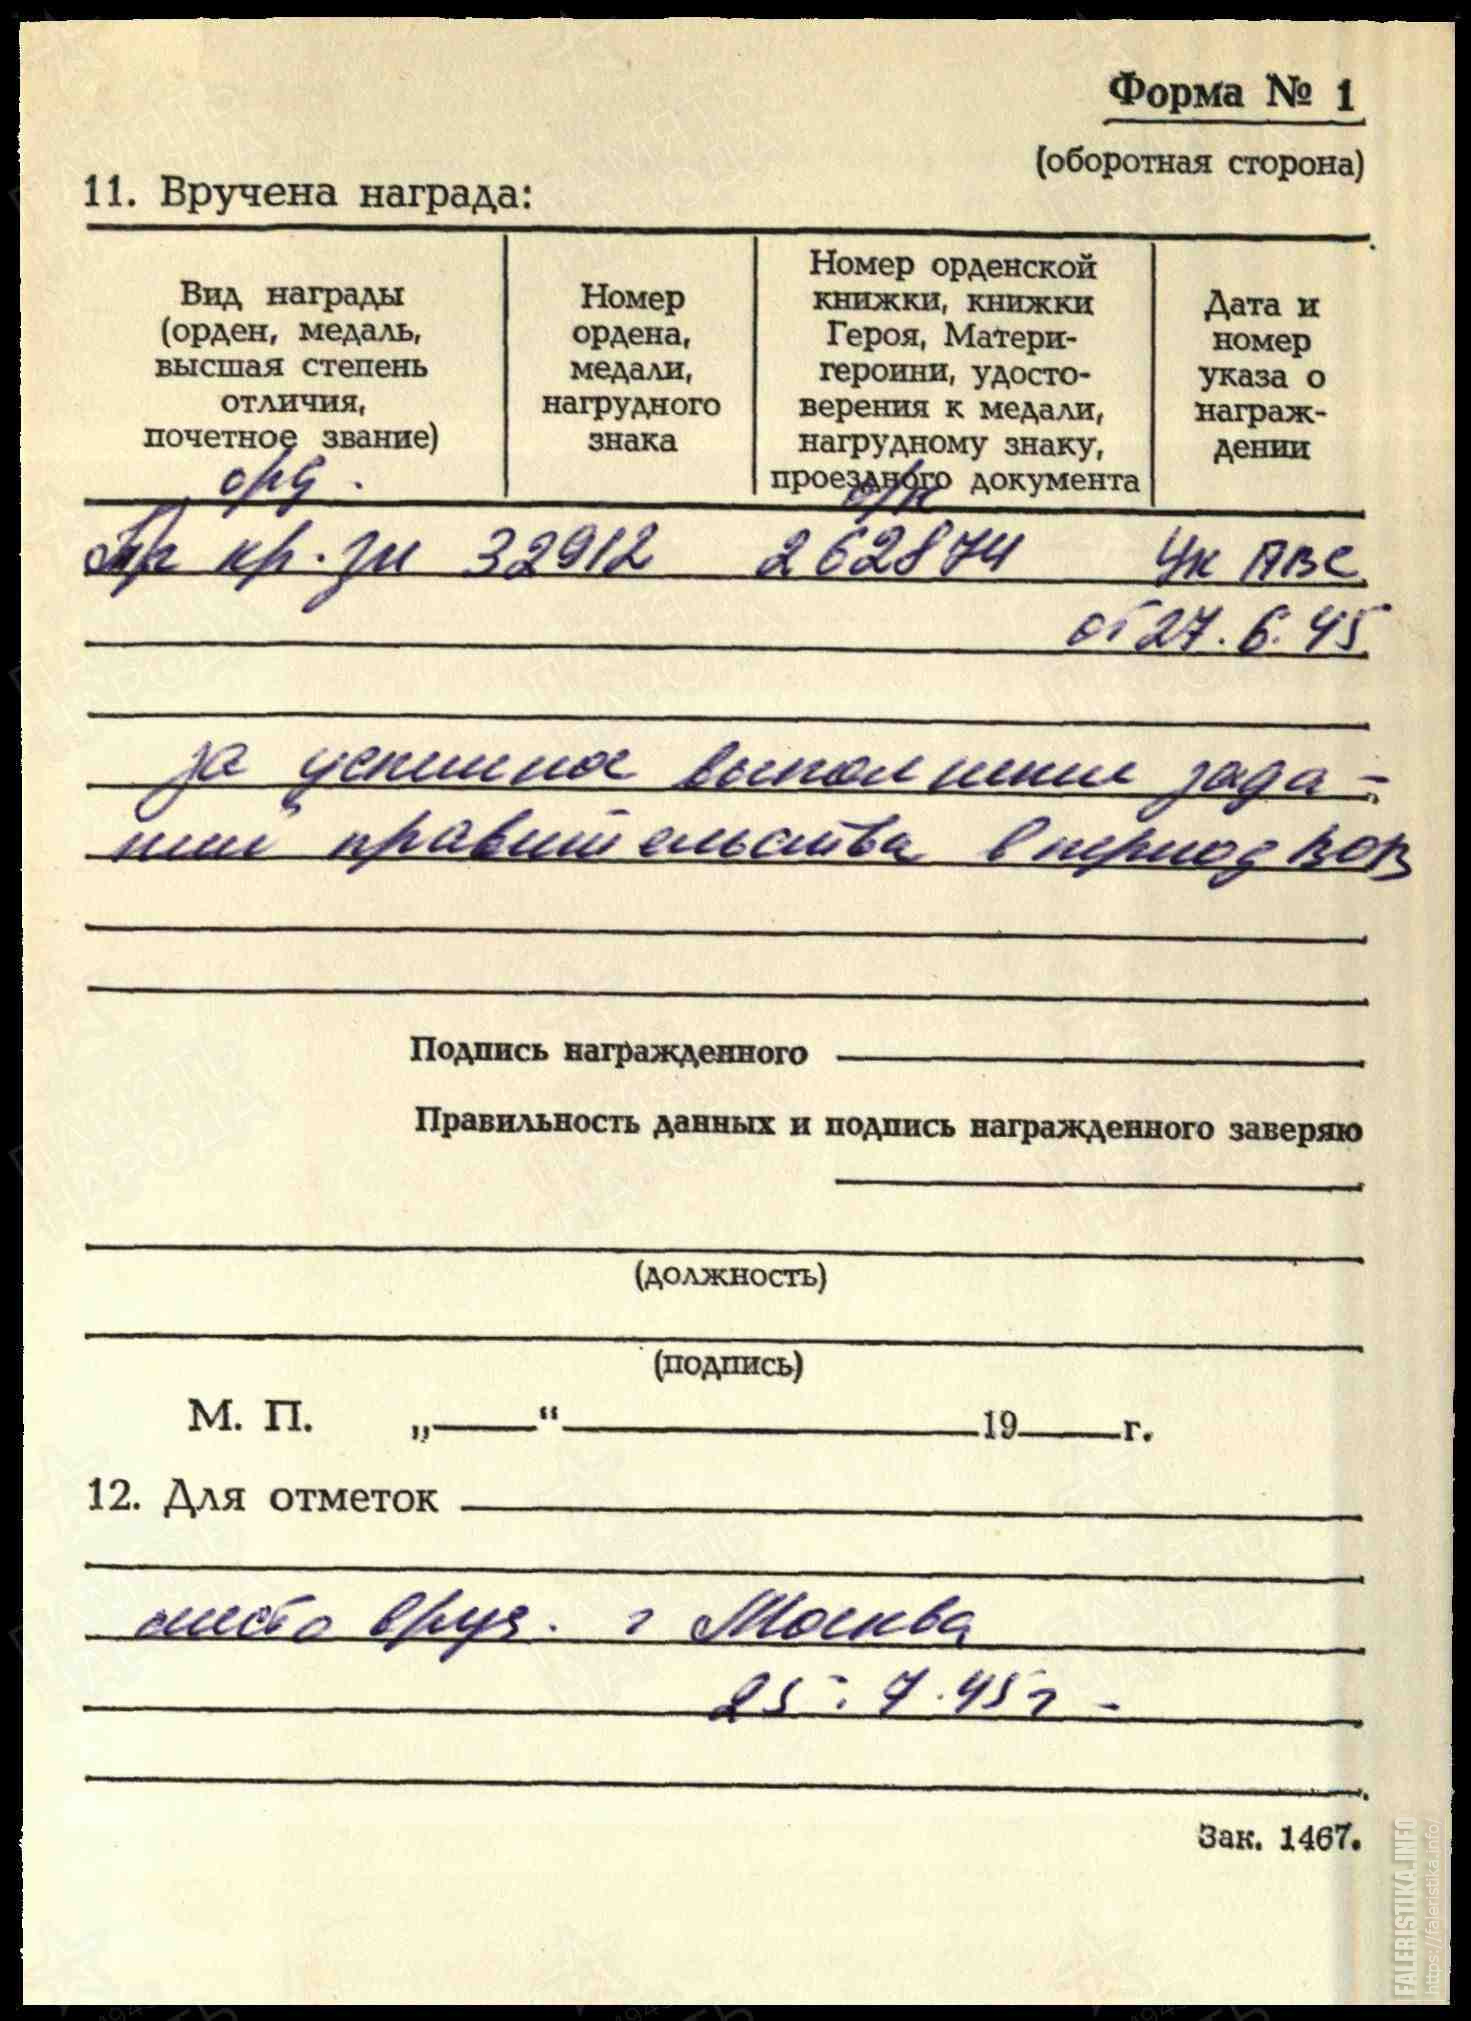 Форма № 1
(оборотная сторона)
11. Вручена награда:
Вид награды (орден, медаль, высшая степень отличия, почетное звание)
Номер ордена, медали, нагрудного знака
Номер орденской книжки, книжки Героя, Матери-героини, удостоверения к медали, нагрудному знаку, проездного документа
Дата и номер указа о награждении
орд. о/к
Тр кр. зн 32912 262874 Ук ПВС
от 27.6.45
за успешное выполнение зада-
ний правительства в период ВОВ
Подпись награжденного
Правильность данных и подпись награжденного заверяю
(должность)
(подпись)
М. П. „ “ 19 г.
12. Для отметок
место вруч. г Москва
25.7.45г
Зак. 1467.
FALERISTIKA.INFO
https://faleristika.info/
ПАМЯТЬ НАРОДА